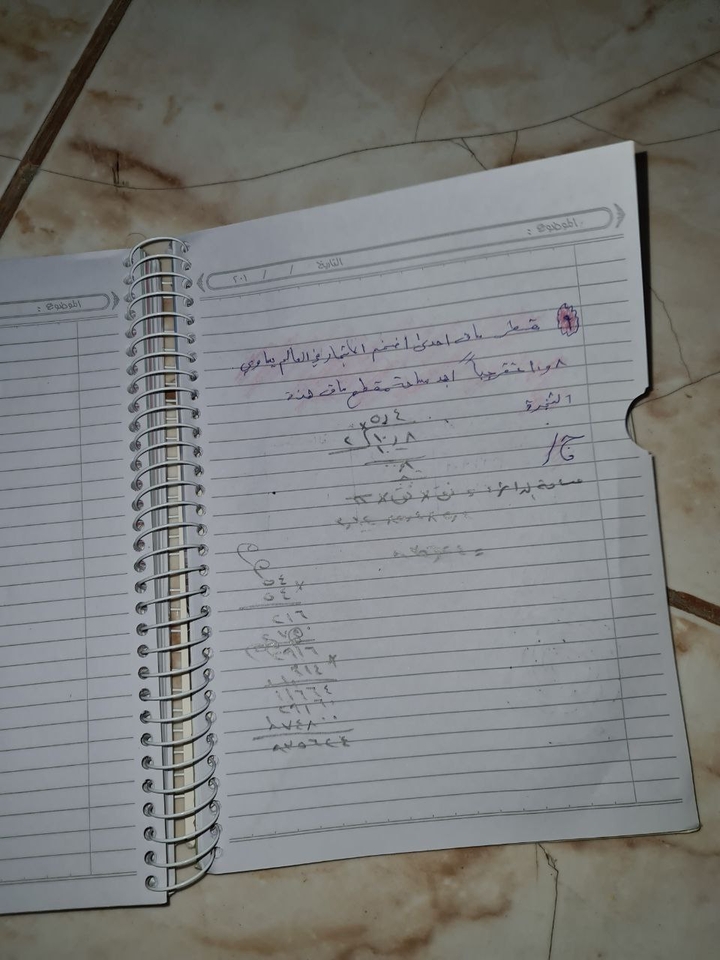 الموضوع :
التاريخ / / ٢٠١
الموضوع :
٩ قطر ساق احدى اضخم الأشجار في العالم يساوي
٨و١٠ م تقريباً اجد مساحة مقطع ساق هذه
الشجرة
ج/
٥٫٤
٢ ١٠٫٨
١٠
٨
٨
مساحة الدائرة = نق × نق × π
=
٥٤ ×
٥٤
٢١٦
٢٧٠٠
٢٩١٦
٣١٤ ×
١١٦٦٤
٢٩١٦٠
٨٧٤٨٠٠